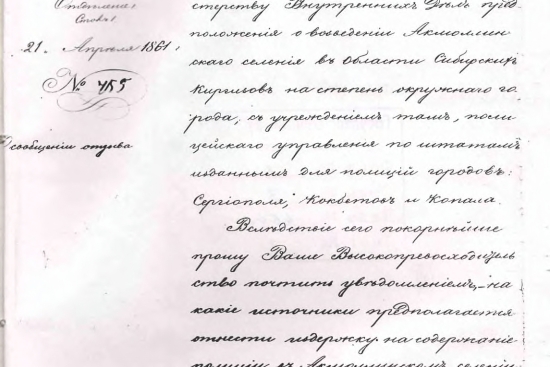 Отделенiе
Столъ 1
21. Апрѣля 1861.
№ 455
О сообщенiи отзыва
стерству Внутреннихъ Дѣлъ пред-
положенiя о возведенiи Акмоллин
скаго селенiя въ Области Сибирскихъ
Киргизовъ на степень окружнаго го-
рода, съ учрежденiемъ тамъ, поли
цейскаго управленiя по штатамъ
изданнымъ для полицiй городовъ:
Сергiополя, Кокбетовъ и Копала.
Вслѣдствiе сего покорнѣйше
прошу Ваше Высокопревосходитель
ство почтить увѣдомленiемъ, – на
какiе источники предполагается
отнести издержку на содержанiе
полицiи въ Акмоллинскомъ селенiи